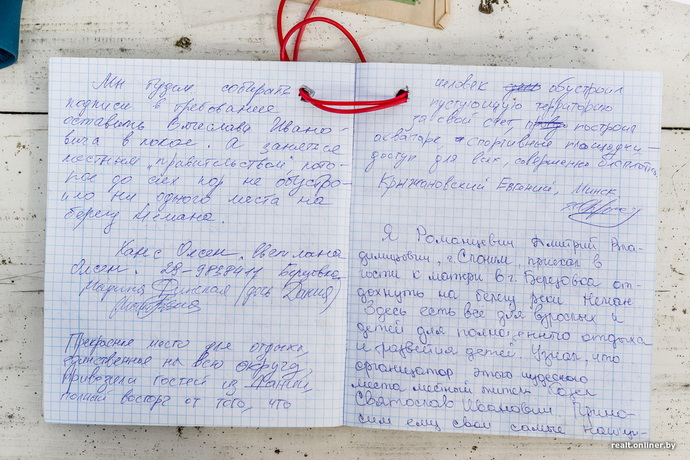 Мы будем собирать
подписи в требование
оставить Вячеслава Ивано-
вича в покое. А заняться
местным "правительством", кото-
рое до сих пор не обустро-
ило ни одного места на
берегу Немана.
Ханс Олсен. Светлана
Олсен.
Марина Финская (дочь Дания)
Прекрасное место для отдыха,
единственное на всю округу,
привозили гостей из Дании,
полный восторг от того, что
человек обустроил
пустующую территорию
за свой счет, построил
акваторе, спортивные площадки -
доступ для всех, совершенно бесплатно.
Крыжановский Евгений, Минск.
Я Романцевич Дмитрий Вла-
димирович, г. Слоним приехал в
гости к матери в г. Березовка от-
дохнуть на берегу реки Неман
Здесь есть все для взрослых и
детей для полноценного отдыха
и развития детей. Узнал, что
организатор этого чудесного
места местный житель
Святослав Иванович. Прино-
сим ему свои самые наилу-
realt.onliner.by